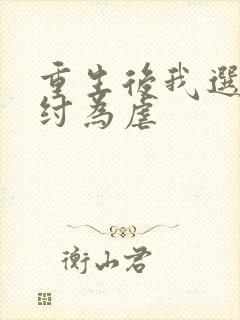 重生後我選
紂為虐
衡山君